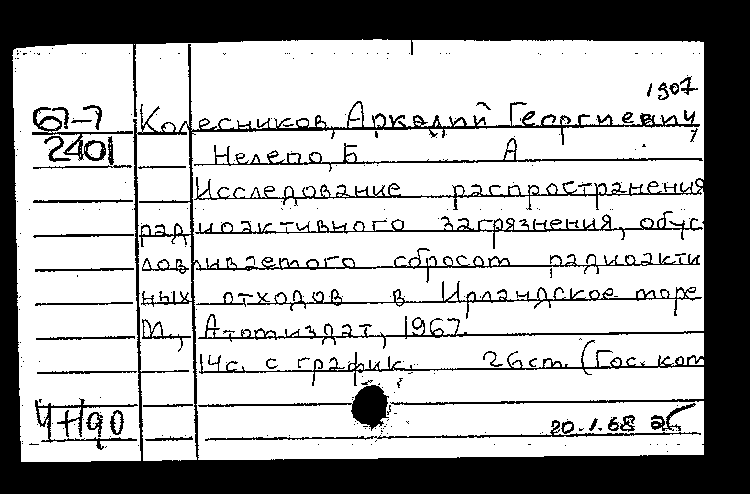 1907
67-7 Колесников, Аркадий Георгиевич,
2401 Нелепо, Б А
Исследование распространения
радиоактивного загрязнения, обус
ловливаемого сбросом радиоакти
ных отходов в Ирландское море
М., Атомиздат, 1967.
14с. с график. 26см. (Гос. ком
20.1.68